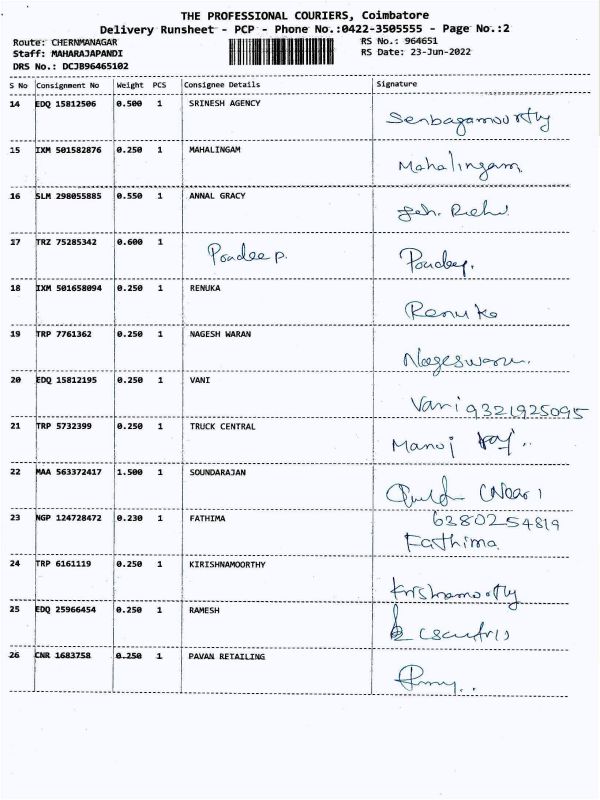 THE PROFESSIONAL COURIERS, Coimbatore
Delivery Runsheet - PCP - Phone No.:0422-3505555 - Page No.:2
Route: CHERNMANAGAR RS No.: 964651
Staff: MAHARAJAPANDI RS Date: 23-Jun-2022
DRS No.: DCJB96465102
S No Consignment No Weight PCS Consignee Details Signature
14 EDQ 15812506 0.500 1 SRINESH AGENCY
Senbagamoorthy
15 IXM 501582876 0.250 1 MAHALINGAM
Mahalingam
16 SLM 298055885 0.550 1 ANNAL GRACY
17 TRZ 75285342 0.600 1
Pradeep. Pradeep.
18 IXM 501658094 0.250 1 RENUKA
Renuka
19 TRP 7761362 0.250 1 NAGESH WARAN
Nageswaran.
20 EDQ 15812195 0.250 1 VANI
Vani 9321925095
21 TRP 5732399 0.250 1 TRUCK CENTRAL
Manoj
22 MAA 563372417 1.500 1 SOUNDARAJAN
23 NGP 124728472 0.230 1 FATHIMA 6380254819
Fathima
24 TRP 6161119 0.250 1 KIRISHNAMOORTHY
Krishnamoorthy
25 EDQ 25966454 0.250 1 RAMESH
26 CNR 1683758 0.250 1 PAVAN RETAILING